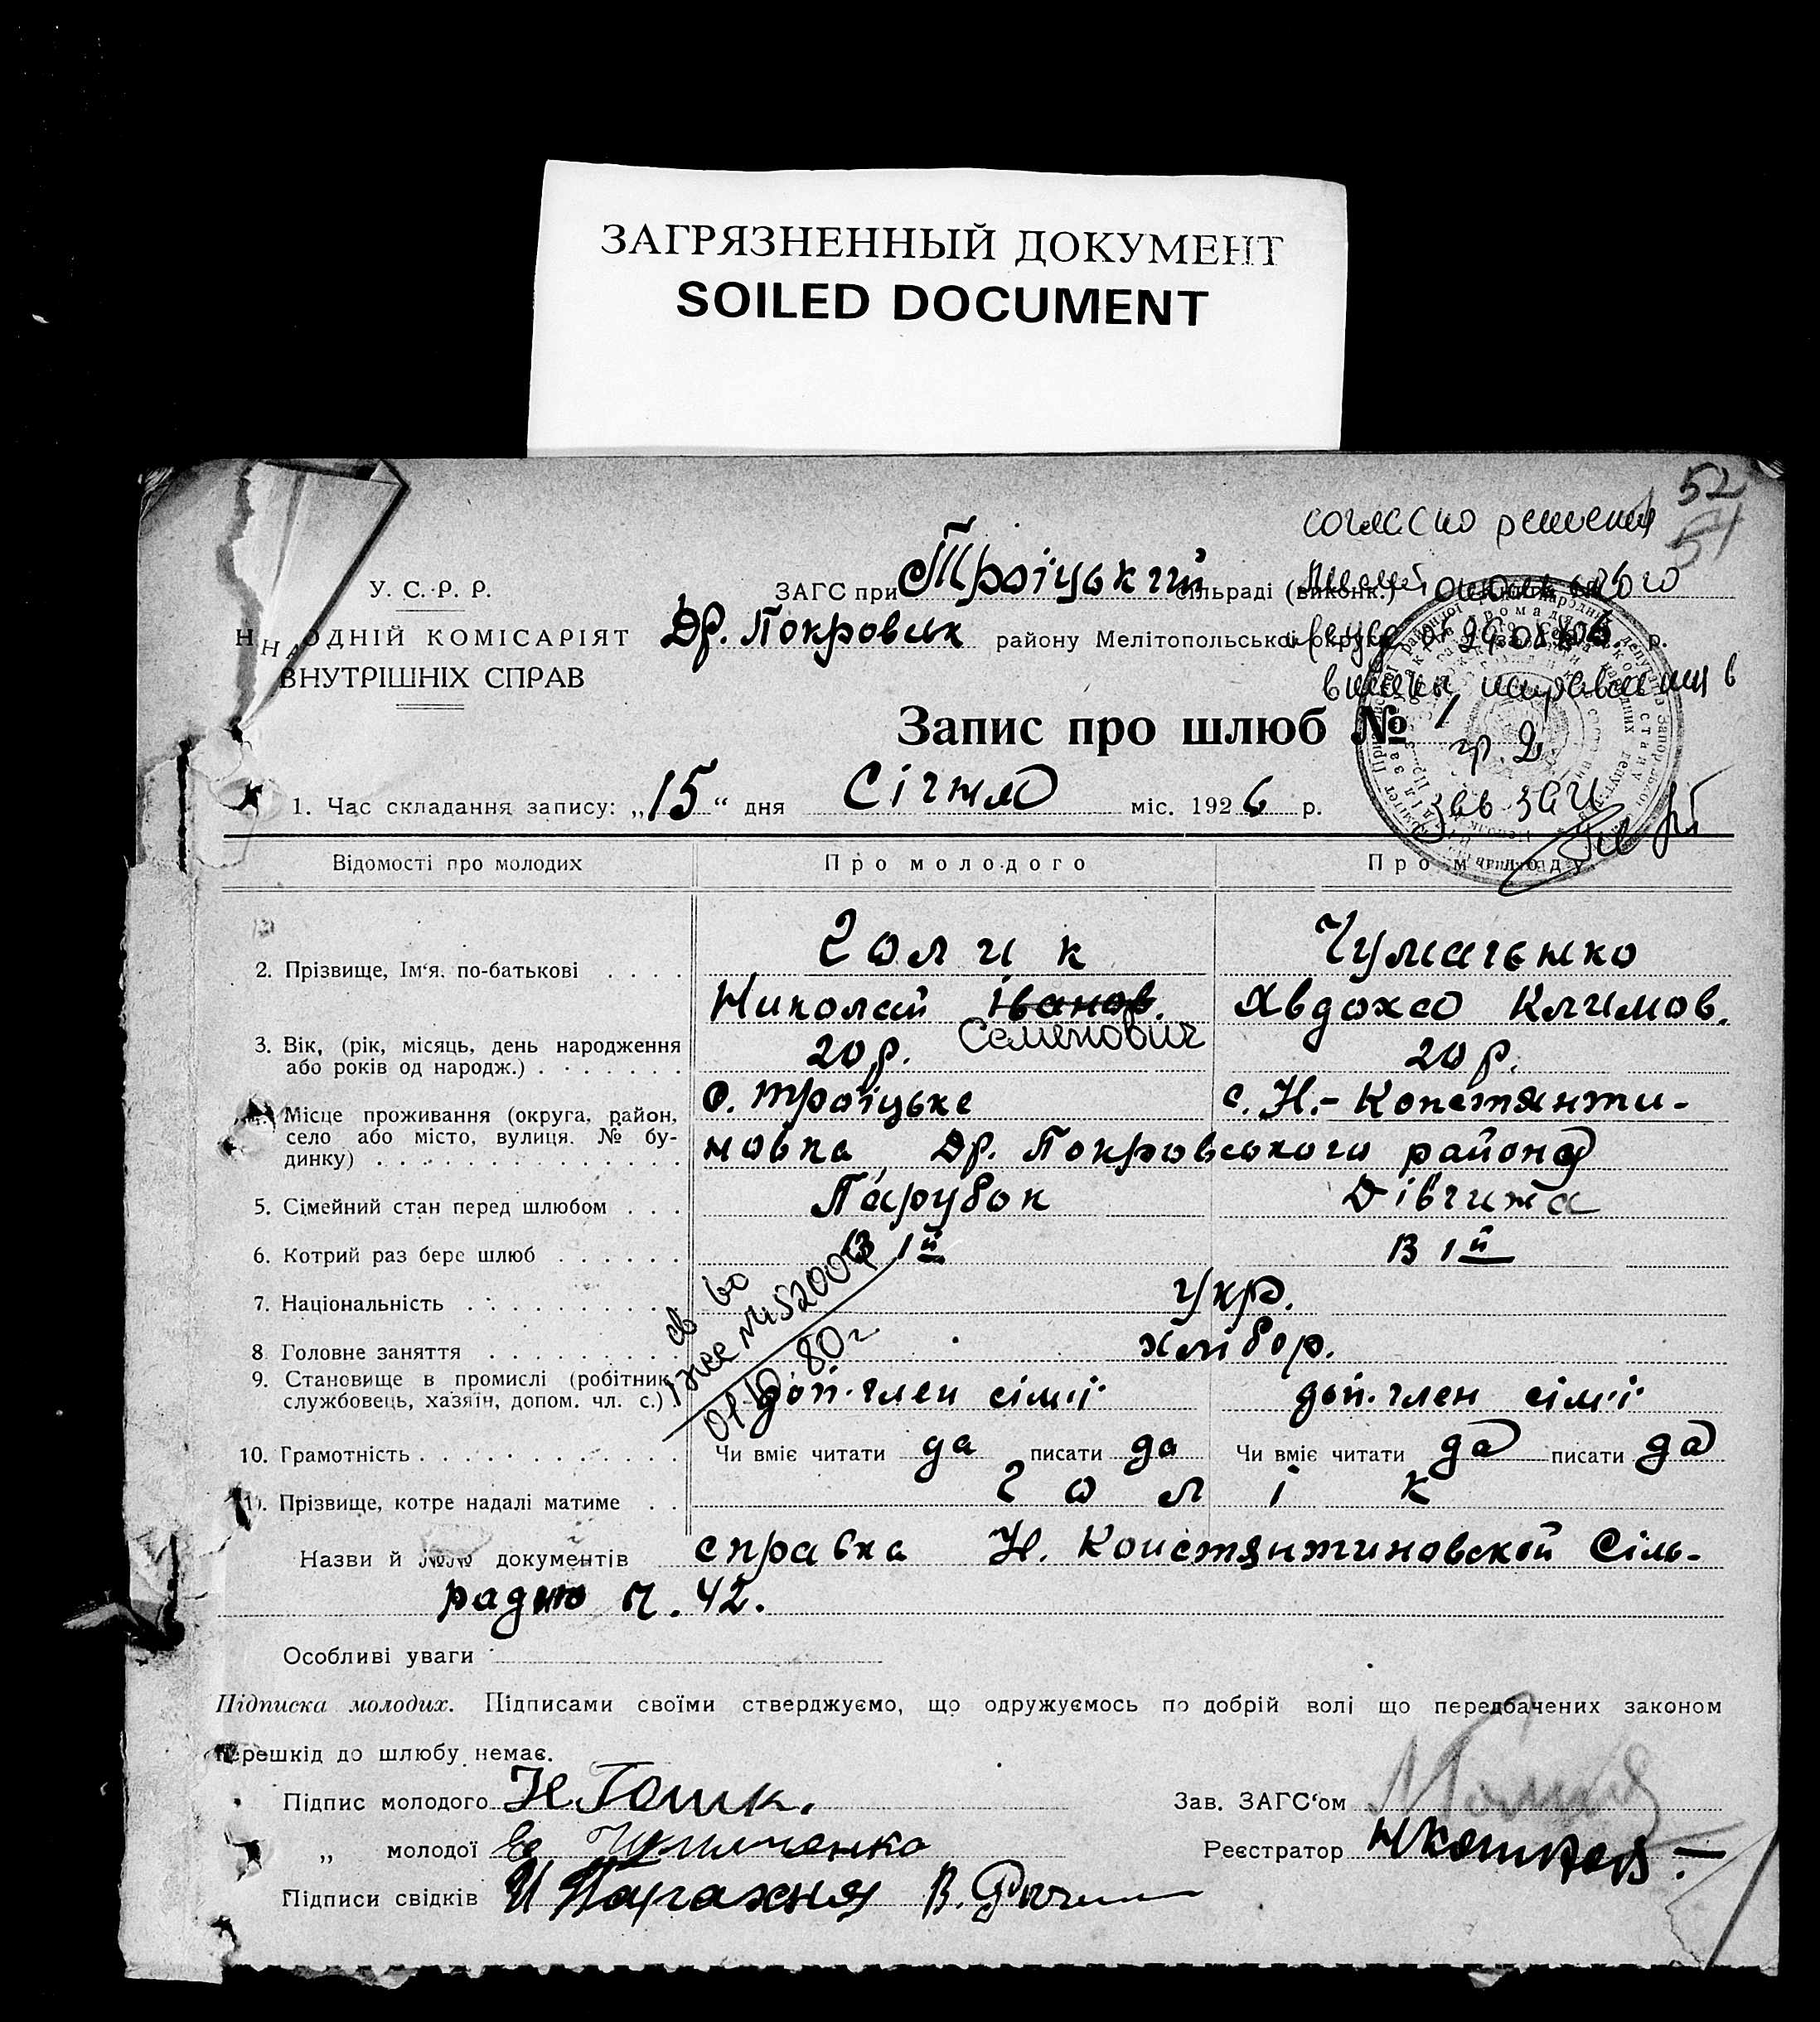 ЗАГРЯЗНЕННЫЙ ДОКУМЕНТ
SOILED DOCUMENT
52
51
согласно решения
У. С. Р. Р.
ЗАГС при Троіцький сільраді (виконк.)
ОДНІЙ КОМІСАРІЯТ
Др. Покровск району Мелітопольської округи р.
ВНУТРІШНІХ СПРАВ
Запис про шлюб № 1
гр. 2
1. Час складання запису: „15“ дня Січня міс. 1926 р.
Зав ЗАГС
Відомості про молодих
Про молодого
Про молоду
2. Прізвище, Ім‘я, по-батькові . . . .
Голик
Чумаченко
Николай Іванов.
Явдоха Климов.
Семенович
3. Вік, (рік, місяць, день народження або років од народж.) . . . . . . .
20 р.
20 р.
4. Місце проживання (округа, район, село або місто, вулиця. № будинку) . . . . . . . . . . . . . .
с. Троїцьке
с. Н.-Констянти-
новка, Др. Покровського района
5. Сімейний стан перед шлюбом . . .
Парубок
Дівчина
6. Котрий раз бере шлюб . . . . . .
В 1й
В 1й
7. Національність . . . . . . . . .
Укр.
8 Головне заняття . . . . . . . .
хлібор.
9. Становище в промислі (робітник, службовець, хазяїн, допом. чл. с.)
доп. член сім'ї
доп. член сім'ї
01.10.80г
10. Грамотність . . . . . . . . . . . .
Чи вміє читати да писати да
Чи вміє читати да писати да
11. Прізвище, котре надалі матиме . .
Голік
Назви й №№ документів справка Н. Констянтиновской Сіль-
радио ч. 42.
Особливі уваги
Підписка молодих. Підписами своїми стверджуємо, що одружуємось по добрій волі що передбачених законом
перешкід до шлюбу немає.
Підпис молодого Н. Голик.
Зав. ЗАГС‘ом
„ молодої Ев Чумаченко
Реєстратор
Підписи свідків